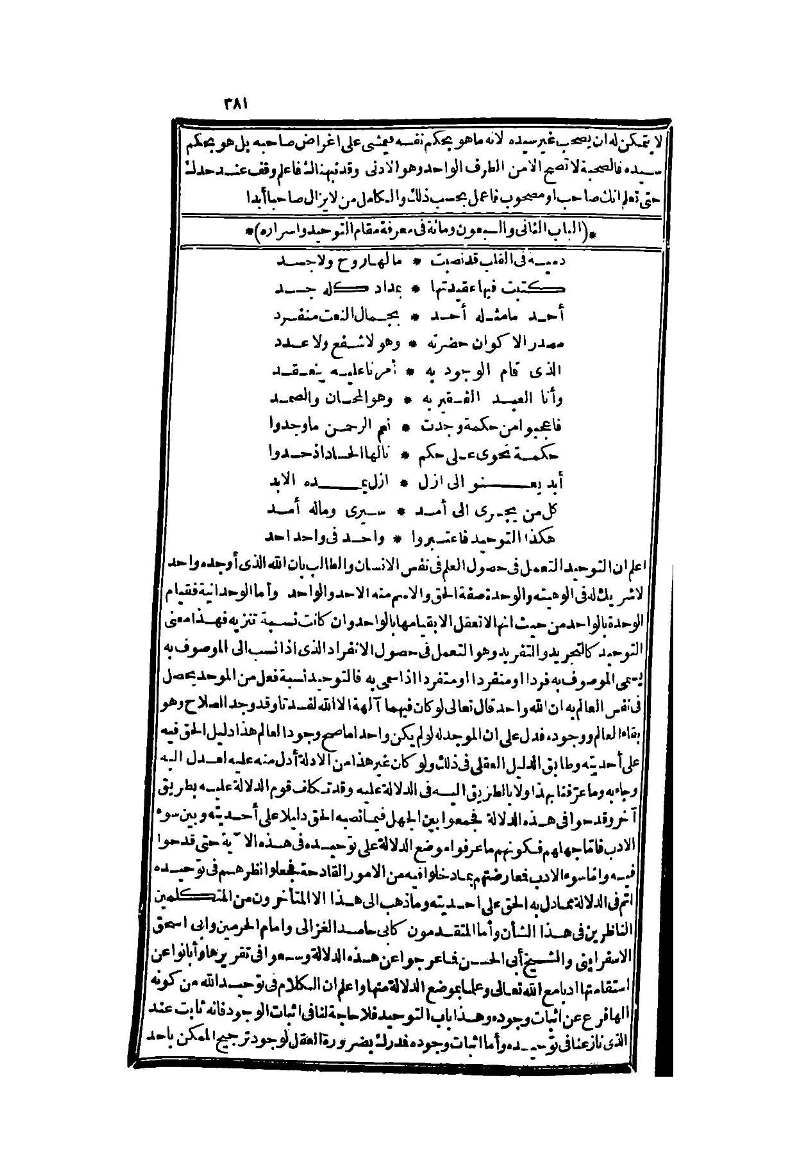 ٣٨١
لا يتمكن له ان يصحب غير سيده لانه ما هو بحكم نفسه فيمشى على اغراض صاحبه بل هو بحكم
سيده فالصحبة لا تصح الا من الطرف الواحد وهو الادنى وقد نبهناك فاعلم وقف عند حدك
حتى تعلم انك صاحب او مصحوب فاعمل بحسب ذلك والكامل من لا يزال صاحبا أبدا
*(الباب الثانى والسبعون ومائة فى معرفة مقام التوحيد واسراره)*
دمية فى القلب قد نصبت * ما لها روح ولا جسد
كتبت فيها عقيدتها * بمداد كله جسد
أحد ما مثله أحد * بجمال النعت منفرد
مصدر الاكوان حضرته * وهو لا شفع ولا عدد
الذى قام الوجود به * أمرنا عليه ينعقد
وأنا العبد الفقير به * وهو المحسان والصمد
فاعجبوا من حكمة وجدت * نعم الرحمن ما وجدوا
حكمة تحوى على حكم * نالها الحساد اذ حسدوا
أبد يعنو الى ازل * ازل يمده الابد
كل من يجرى الى أمد * سيرى وماله أمد
هكذا التوحيد فاعتبروا * واحد فى واحد احد
اعلم ان التوحيد التعمل فى حصول العلم فى نفس الانسان والطالب بان الله الذى أوجده واحد
لا شريك له فى الوهيته والوحدة صفة الحق والاسم منه الاحد والواحد وأما الوحدانية فقيام
الوحدة بالواحد من حيث انها لا تعقل الا بقيامها بالواحد وان كانت نسبة تنزيه فهذا معنى
التوحيد كالتجريد والتفريد وهو التعمل فى حصول الانفراد الذى اذا نسب الى الموصوف به
يسمى الموصوف به فردا او منفردا او متفردا اذا سمى به فالتوحيد نسبة فعل من الموحد يحصل
فى نفس العالم به ان الله واحد قال تعالى لو كان فيهما آلهة الا الله لفسدتا وقد وجد الصلاح وهو
بقاء العالم ووجوده فدل على ان الموجد له لو لم يكن واحدا ما صح وجود العالم هذا دليل الحق فيه
على أحديته وطابق الدليل العقلى فى ذلك ولو كان غير هذا من الادلة أدل منه عليه لعدل اليه
وجاء به وما عرفنا بهذا ولا بالطريق اليه فى الدلالة عليه وقد تكلف قوم الدلالة عليه بطريق
آخر وقدحوا فى هذه الدلالة فجمعوا بين الجهل فيما نصبه الحق دليلا على أحديته وبين سوء
الادب فاما جهلهم فكونهم ما عرفوا موضع الدلالة على توحيده فى هذه الآية حتى قدحوا
فيه واما سوء الادب فمعارضتهم بما دخلوا فيه من الامور القادحة فجعلوا نظرهم فى توحيده
اتم فى الدلالة مما دل به الحق على احديته وما ذهب الى هذا الا المتأخرون من المتكلمين
الناظرين فى هذا الشأن وأما المتقدمون كابى حامد الغزالى وامام الحرمين وابى اسحق
الاسفراينى والشيخ أبى الحسن فما عرجوا عن هذه الدلالة وسعوا فى تقريرها وأبانوا عن
استقامتها ادبا مع الله تعالى وعلما بموضع الدلالة منها واعلم ان الكلام فى توحيد الله من كونه
الها فرع عن اثبات وجوده وهذا باب التوحيد فلا حاجة لنا فى اثبات الوجود فانه ثابت عند
الذى نازعنا فى توحيده وأما اثبات وجوده فمدرك بضرورة العقل لوجود ترجيح الممكن باحد